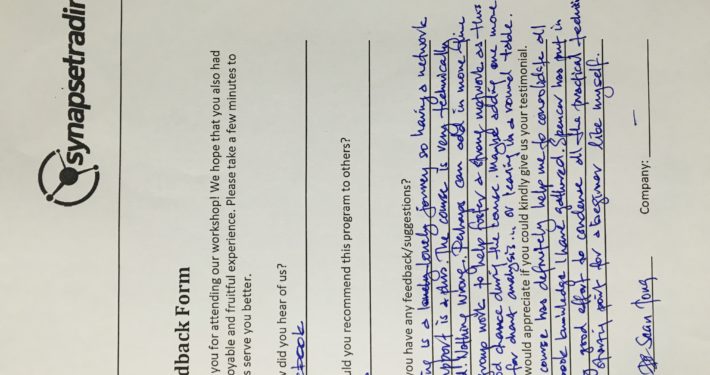 synapsetradin
dback Form
you for attending our workshop! We hope that you also had
oyable and fruitful experience. Please take a few minutes to
s serve you better.
w did you hear of us?
ebook
uld you recommend this program to others?
you have any feedback/suggestions?
ing is a lonely journey so having a network
pport is a plus. The course is very technically
! Nothing wrong. Perhaps can add in more time
group work to help foster a strong network as this
od chance during the course. Maybe adding one more
for chart analysis.. or tearing in a round table.
would appreciate if you could kindly give us your testimonial.
course has definitely help me to consolidate all
ook knowledge I have gathered. Spencer has put in
y good effort to condense all the practical
starting point for a beginner like myself.
Sean Tong Company: –